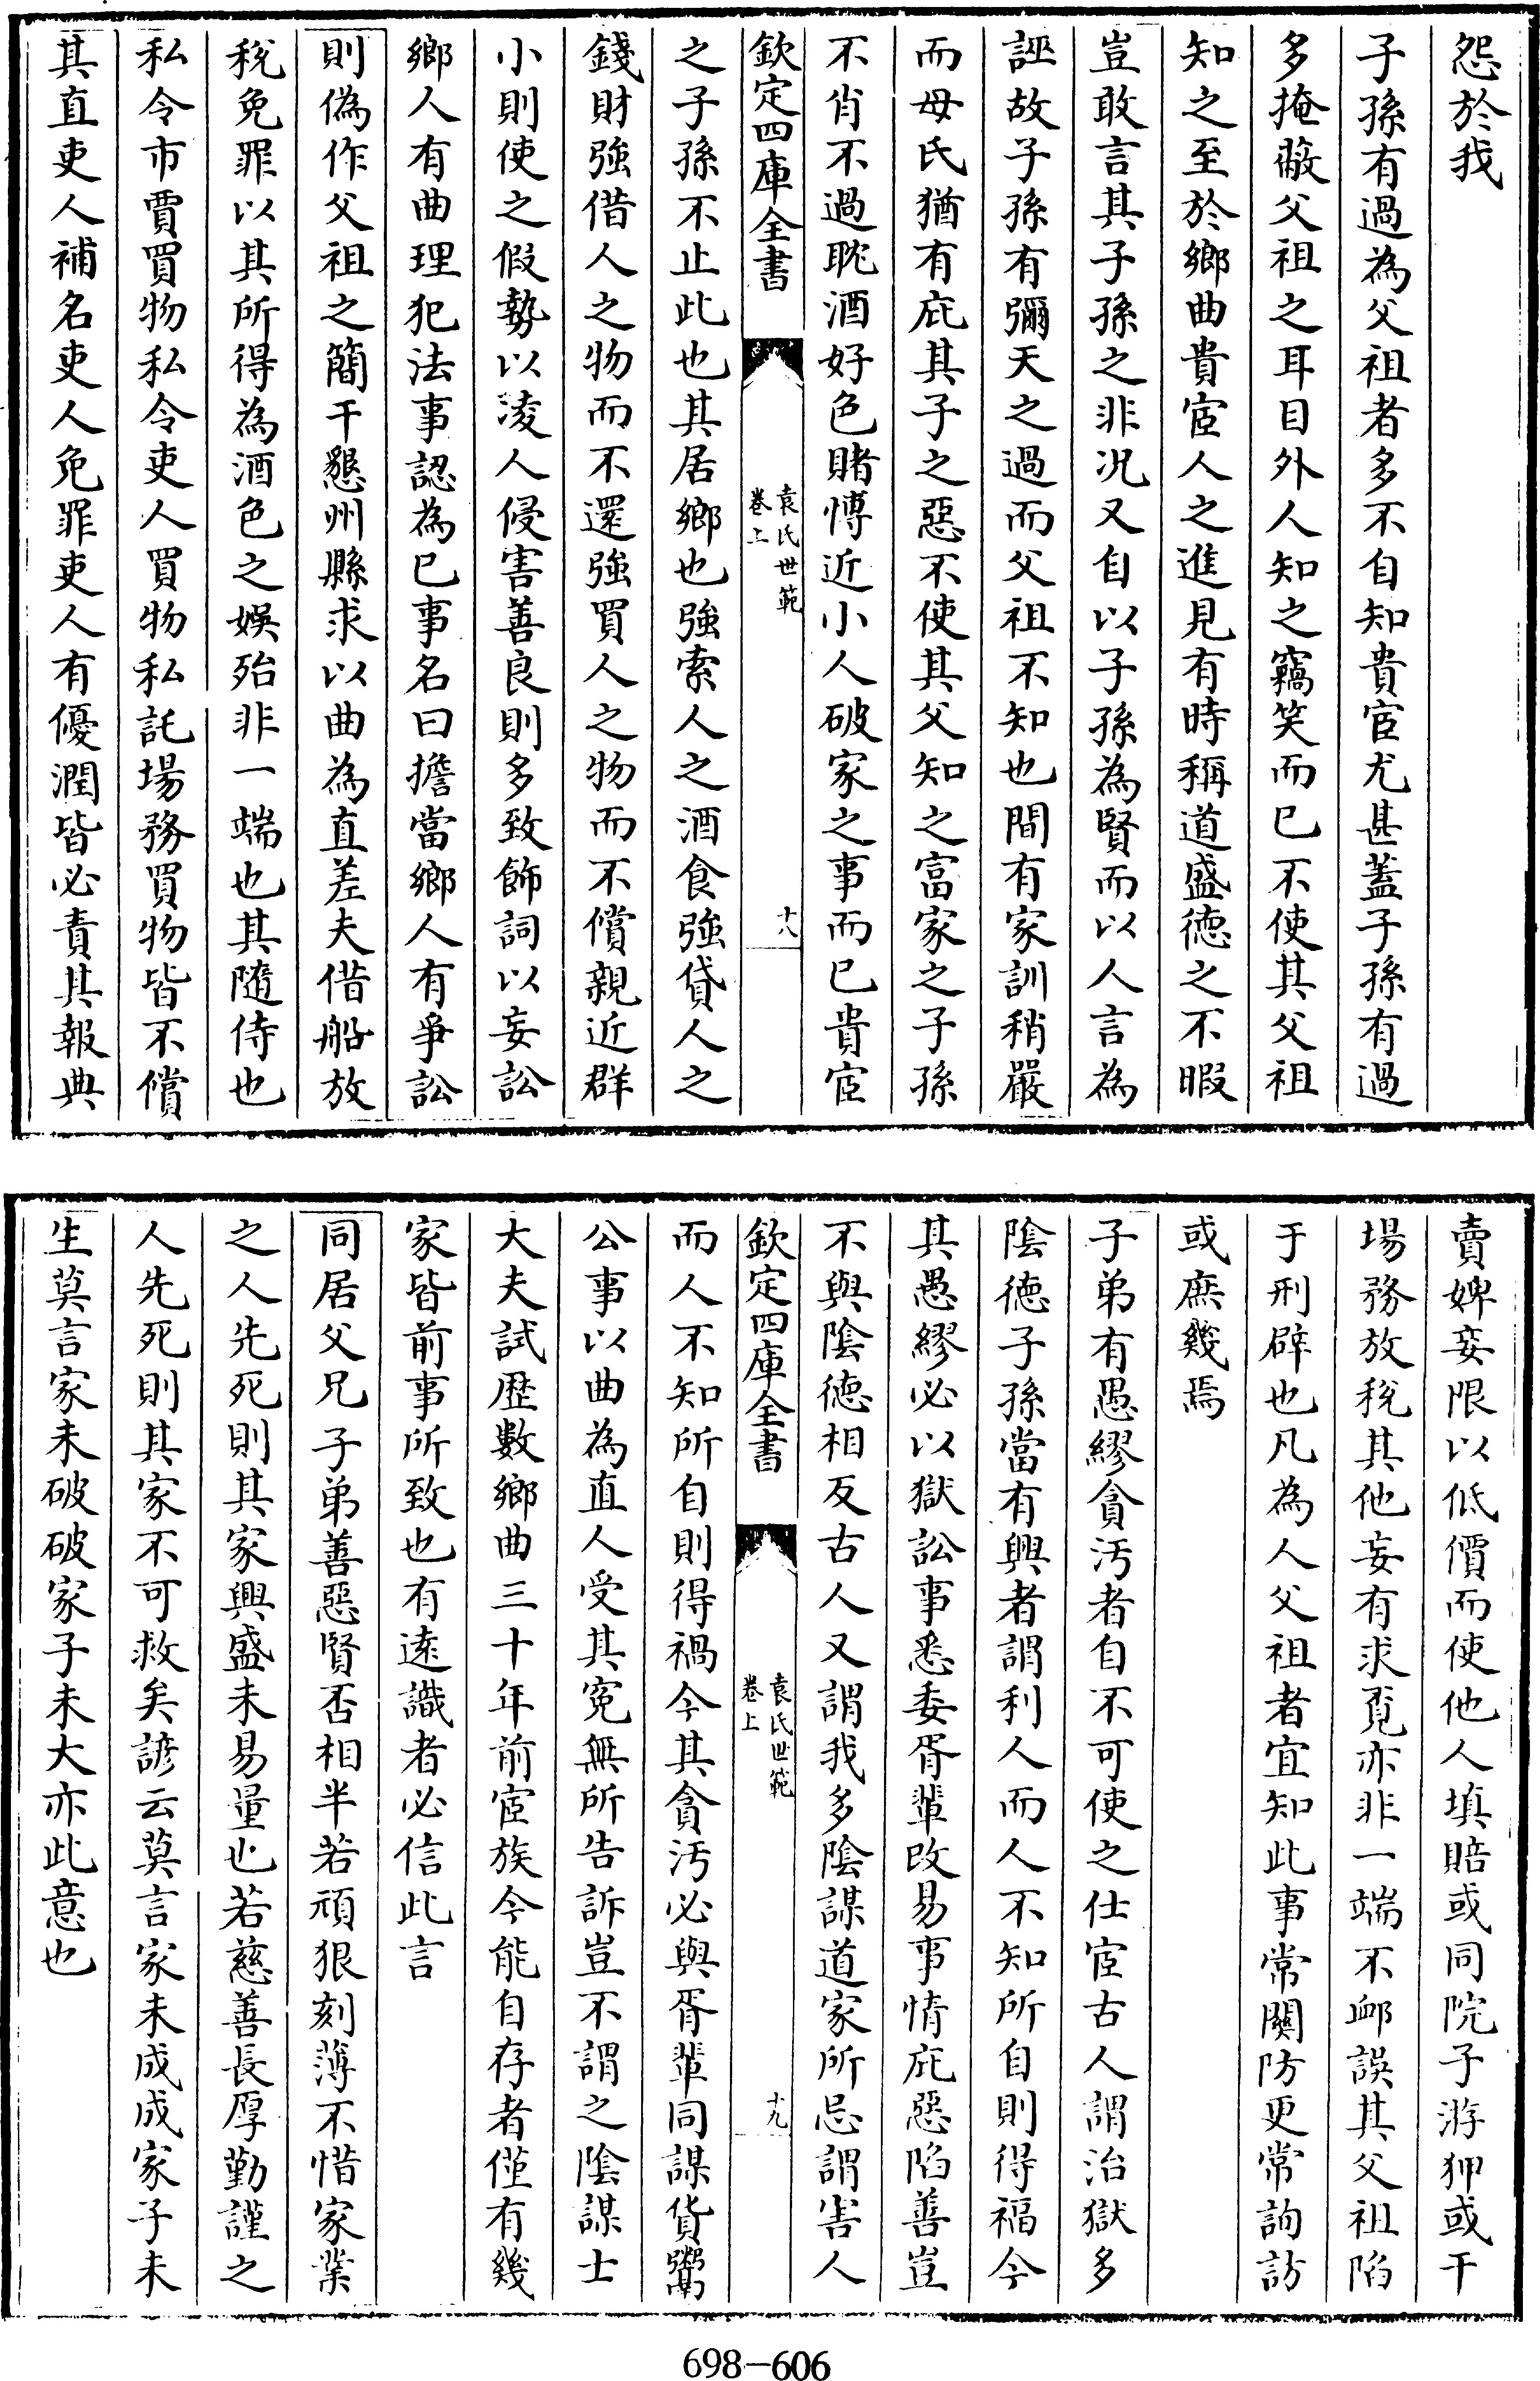 怨於我
子孫有過為父祖者多不自知貴宦尤甚蓋子孫有過
多掩蔽父祖之耳目外人知之竊笑而已不使其父祖
知之至於鄉曲貴宦人之進見有時稱道盛德之不暇
豈敢言其子孫之非况又自以子孫為賢而以人言為
誣故子孫有彌天之過而父祖不知也間有家訓稍嚴
而母氏猶有庇其子之惡不使其父知之富家之子孫
不肖不過耽酒好色賭博近小人破家之事而已貴宦
欽定四庫全書
袁氏世範
卷上
十八
之子孫不止此也其居鄉也強索人之酒食強貸人之
錢財強借人之物而不還強買人之物而不償親近群
小則使之假勢以凌人侵害善良則多致飾詞以妄訟
鄉人有曲理犯法事認為已事名曰擔當鄉人有爭訟
則偽作父祖之簡干懇州縣求以曲為直差夫借船放
稅免罪以其所得為酒色之娛殆非一端也其隨侍也
私令市賈買物私令吏人買物私託場務買物皆不償
其直吏人補名吏人免罪吏人有優潤皆必責其報典
賣婢妾限以低價而使他人填賠或同院子游狎或干
場務放稅其他妄有求覓亦非一端不卹誤其父祖陷
于刑辟也凡為人父祖者宜知此事常關防更常詢訪
或庶幾焉
子弟有愚繆貪汚者自不可使之仕宦古人謂治獄多
陰德子孫當有興者謂利人而人不知所自則得福今
其愚繆必以獄訟事悉委胥輩改易事情庇惡陷善豈
不與陰德相反古人又謂我多陰謀道家所忌謂害人
欽定四庫全書
袁氏世範
卷上
十九
而人不知所自則得禍今其貪汚必與胥輩同謀貨鬻
公事以曲為直人受其寃無所告訴豈不謂之陰謀士
大夫試歷數鄉曲三十年前宦族今能自存者僅有幾
家皆前事所致也有遠識者必信此言
同居父兄子弟善惡賢否相半若頑狠刻薄不惜家業
之人先死則其家興盛未易量也若慈善長厚勤謹之
人先死則其家不可救矣諺云莫言家未成成家子未
生莫言家未破破家子未大亦此意也
698-606